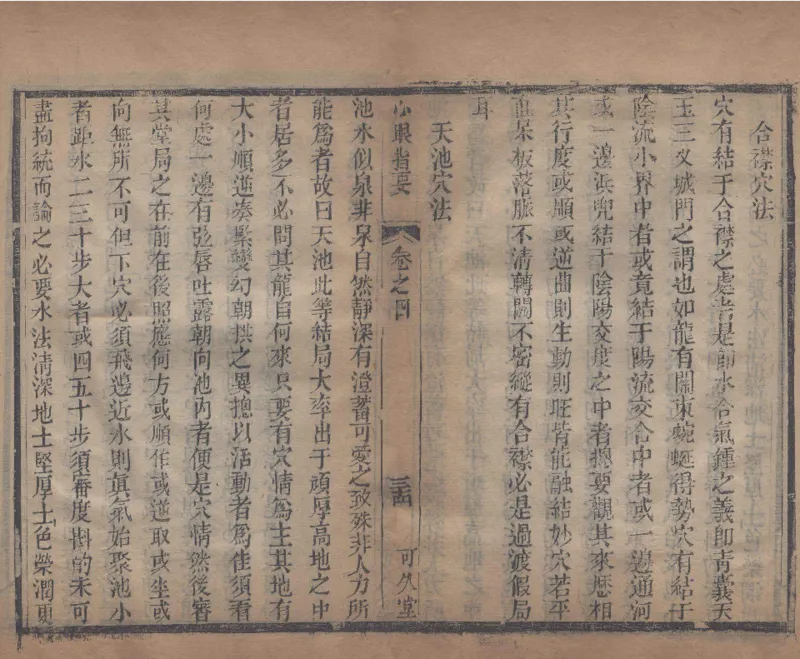 合襟穴法
穴有結于合襟之處者是即水合氣鍾之義即青囊天
玉三叉城門之謂也如龍有關束蜿蜒得勢穴有結于
陰流小界中者或竟結于陽流交合中者或一邊通河
或一邊浜兜結于陰陽交度之中者摠要觀其來歷相
其行度或順或逆曲則生動則旺皆能融結妙穴若平
直呆板落脈不清轉關不密縱有合襟必是過渡假局
耳
天池穴法
心眼指要
卷之四
三四
可久堂
池水似泉非泉自然靜深有澄蓄可愛之致殊非人力所
能爲者故曰天池此等結局大率出于頑厚高地之中
者居多不必問其龍自何來只要有穴情爲主其地有
大小順逆湊景變幻朝拱之異摠以活動者爲佳須看
何處一邊有弦唇吐露朝向池內者便是穴情然後審
其堂局之在前在後照應何方或順作或逆取或坐或
向無所不可但下穴必須飛邊近水則眞氣始聚池小
者距水二三十步大者或四五十步須審度斟酌未可
盡拘統而論之必要水法清深地土堅厚土色榮潤更